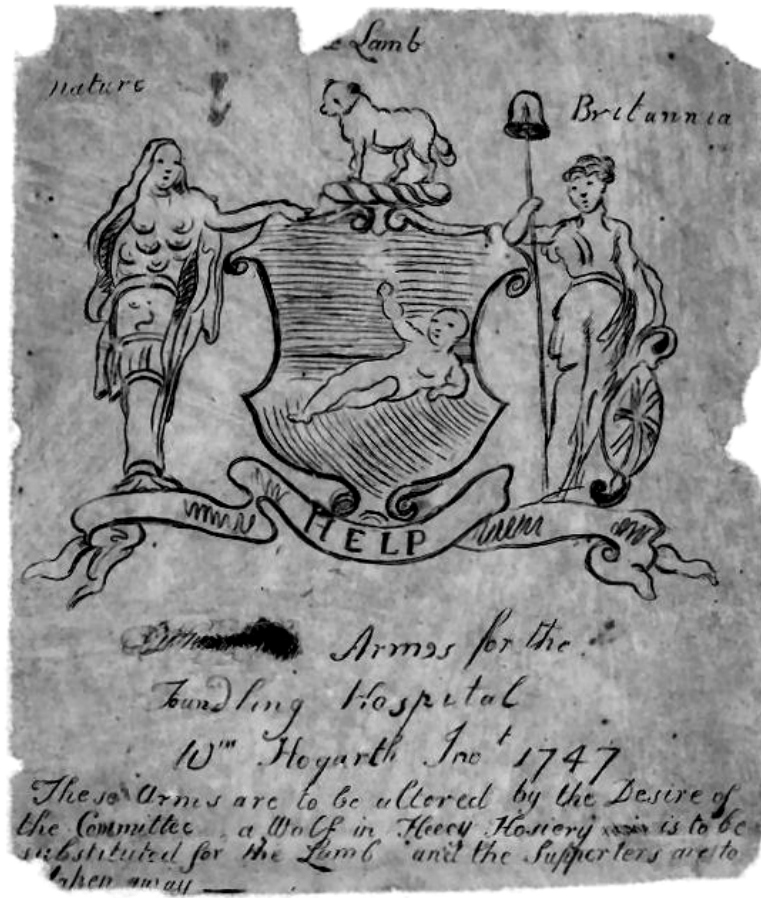 Lamb
nature
Britannia
HELP
Armes for the
Foundling Hospital
Wm Hogarth Invt 1747
These Arms are to be altered by the Desire of
the Committee a Wolf in Fleecy Hosiery is to be
substituted for the Lamb and the Supporters are to
taken away